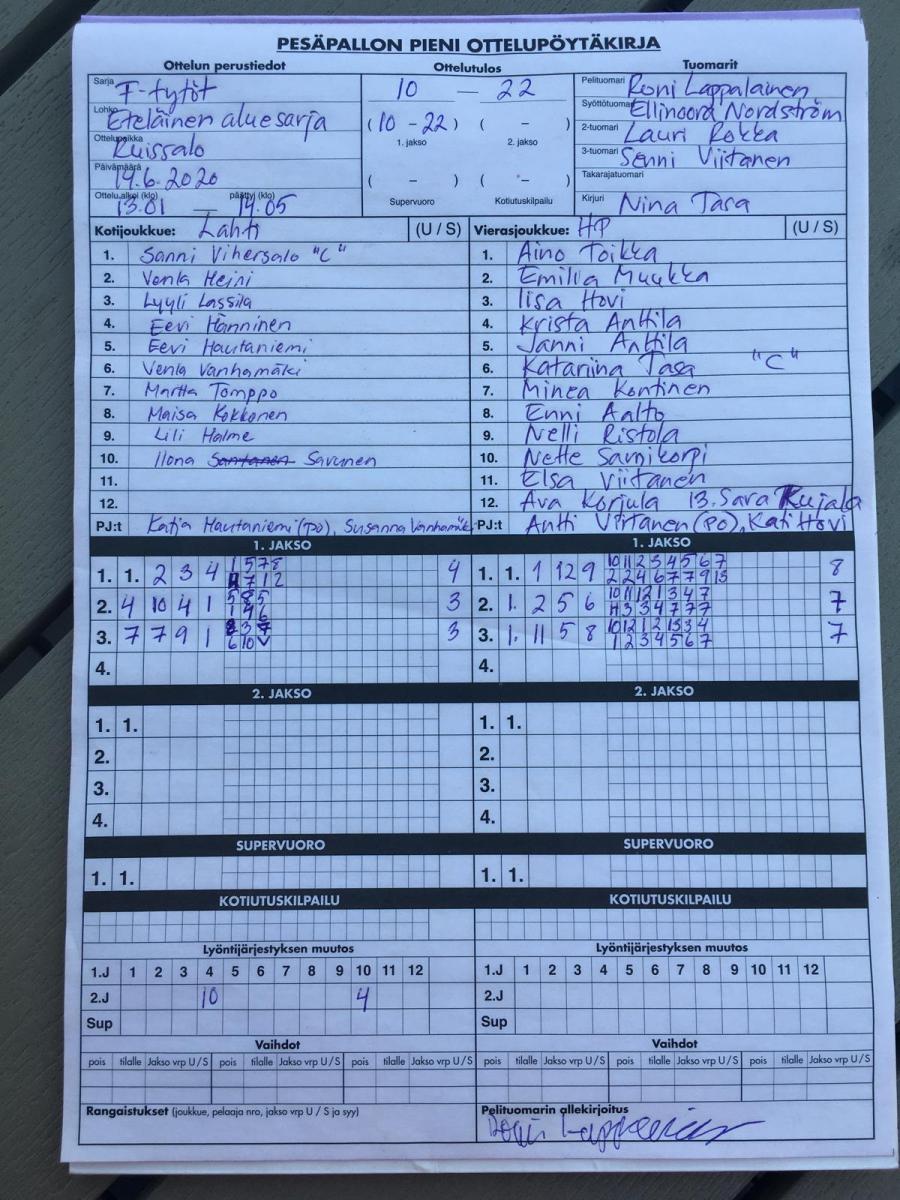 PESÄPALLON PIENI OTTELUPÖYTÄKIRJA
Ottelun perustiedot Ottelutulos Tuomarit
Sarja F-tytöt 10 — 22 Pelituomari Roni Lappalainen
Lohko Eteläinen aluesarja Syöttötuomari Ellinoora Nordström
Ottelupaikka Ruissalo (10 - 22) ( - ) 2-tuomari Lauri Rokka
1. jakso 2. jakso 3-tuomari Senni Viitanen
Päivämäärä 14.6.2020 ( - ) ( - ) Takarajatuomari
Ottelu alkoi (klo) 13.01 — päättyi (klo) 14.05 Supervuoro Kotiutuskilpailu Kirjuri Nina Tasa
Kotijoukkue: Lahti (U / S) Vierasjoukkue: HP (U / S)
1. Sanni Vihersalo "C" 1. Aino Toikka
2. Venla Heini 2. Emilia Muukka
3. Lyyli Lassila 3. Iisa Hovi
4. Eevi Hänninen 4. Krista Anttila
5. Eevi Hautaniemi 5. Janni Anttila
6. Venla Vanhamäki 6. Katariina Tasa "C"
7. Martta Tomppo 7. Minea Kontinen
8. Maisa Kokkonen 8. Enni Aalto
9. Lili Halme 9. Nelli Ristola
10. Ilona Santanen Savunen 10. Nette Samikorpi
11. 11. Elsa Viitanen
12. 12. Ava Korjula 13. Sara Kujala
PJ:t Katja Hautaniemi (PO), Susanna Vanhamäki PJ:t Antti Virtanen (PO), Kati Hovi
1. JAKSO 1. JAKSO
1. 1. 2 3 4 1 5 7 8 4 1. 1. 1 12 9 10 11 2 3 4 5 6 7 8
7 1 2 2 2 4 6 7 7 9 13
2. 4 10 4 1 5 8 5 3 2. 1. 2 5 6 10 11 12 1 3 4 7 7
1 4 6 3 3 4 7 7 7
3. 7 7 9 1 3 3. 1. 11 5 8 10 12 1 2 13 3 4 7
6 10 V 1 2 3 4 5 6 7
4. 4.
2. JAKSO 2. JAKSO
1. 1. 1. 1.
2. 2.
3. 3.
4. 4.
SUPERVUORO SUPERVUORO
1. 1. 1. 1.
KOTIUTUSKILPAILU KOTIUTUSKILPAILU
Lyöntijärjestyksen muutos Lyöntijärjestyksen muutos
1.J 1 2 3 4 5 6 7 8 9 10 11 12 1.J 1 2 3 4 5 6 7 8 9 10 11 12
2.J 10 4 2.J
Sup Sup
Vaihdot Vaihdot
pois tilalle Jakso vrp U / S pois tilalle Jakso vrp U / S pois tilalle Jakso vrp U / S pois tilalle Jakso vrp U / S pois tilalle Jakso vrp U / S pois tilalle Jakso vrp U / S
Rangaistukset (joukkue, pelaaja nro, jakso vrp U / S ja syy) Pelituomarin allekirjoitus
Roni Lappalainen